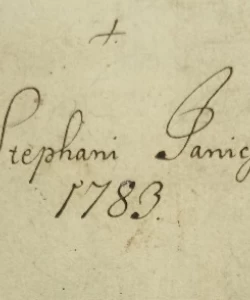 +
Stephani Janig
1783.